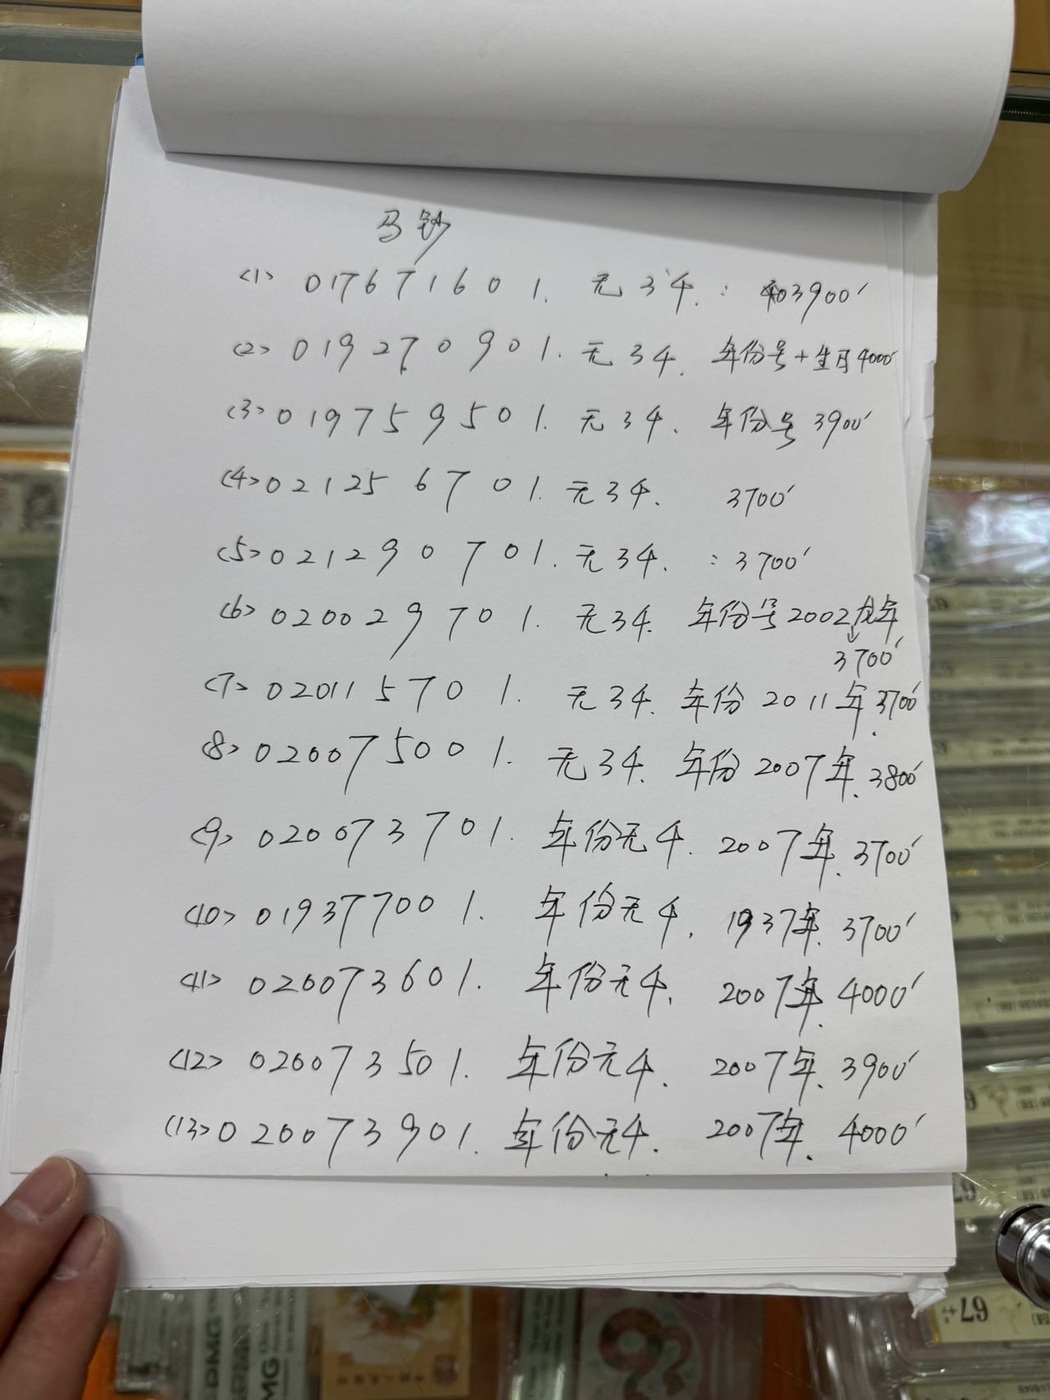 马钞
<1> 017671601. 无34.: 3900′
<2> 019270901. 无34. 年份号+生日4000′
<3> 019759501. 无34、年份号3900′
<4> 021256701. 无34. 3700′
<5> 021290701. 无34. :3700′
<6> 020029701. 无34. 年份号2002龙年
3700′
<7> 020115701. 无34. 年份2011年.3700′
<8> 020075001. 无34、年份2007年.3800′
<9> 020073701. 年份无4. 2007年.3700′
<10> 019377001. 年份无4. 1937年.3700′
<11> 020073601. 年份无4. 2007年.4000′
<12> 020073501. 年份无4. 2007年.3900′
<13> 020073901. 年份无4. 2007年.4000′
67
PMG